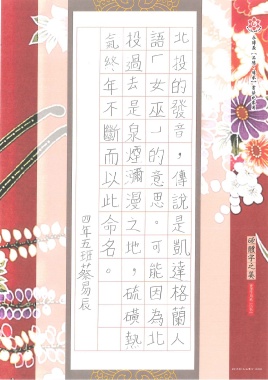 硬體字之美
北投的發音，傳說是凱達格蘭人
語「女巫」的意思。可能因為北
投過去是泉煙瀰漫之地，硫磺熱
氣終年不斷而以此命名。
四年五班蔡易辰